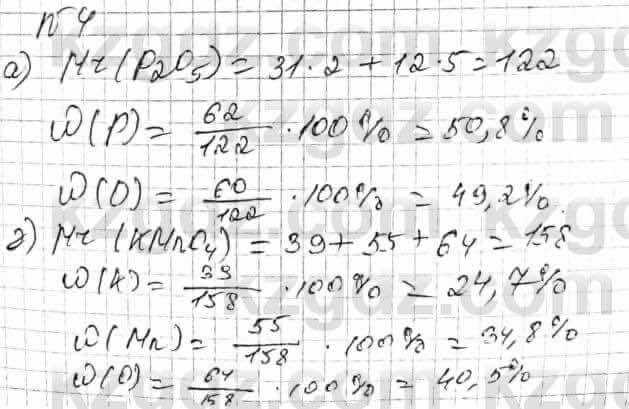 № 4
а) Mr(P₂O₅) = 31·2 + 12·5 = 122
ω(P) = 62/122 · 100% = 50,8%
ω(O) = 60/122 · 100% = 49,2%.
г) Mr(KMnO₄) = 39 + 55 + 64 = 158
ω(K) = 39/158 · 100% = 24,7%
ω(Mn) = 55/158 · 100% = 34,8%
ω(O) = 64/158 · 100% = 40,5%